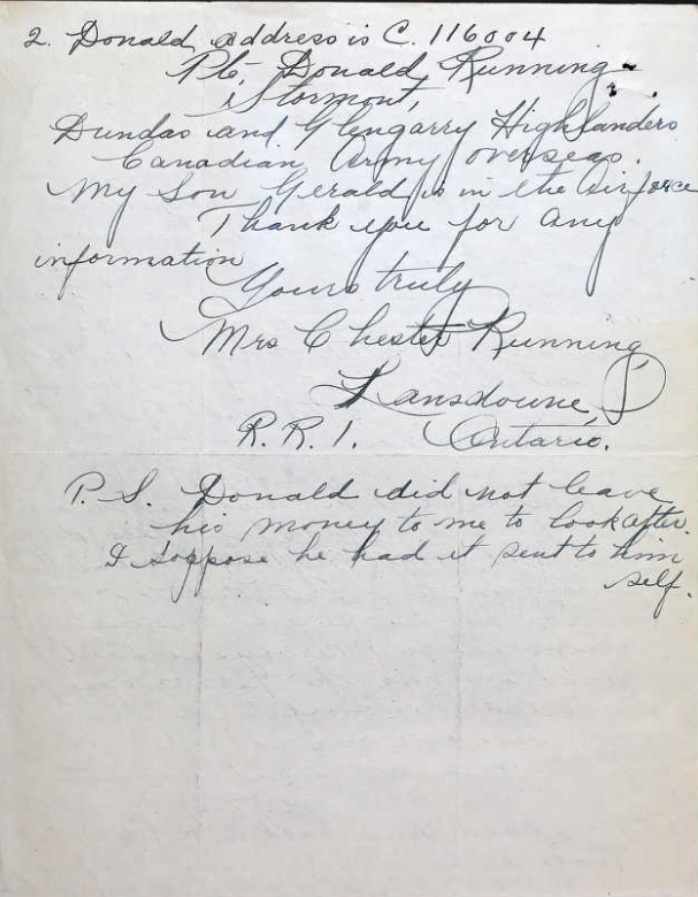 2. Donald, address is C. 116004
Pte, Donald Running -
Stormont,
Dundas and Glengarry Highlanders
Canadian Army overseas.
My Son Gerald is in the Airforce
Thank you for any
information
Yours truly
Mrs Chester Running,
Lansdowne,
R.R.1. Ontario.
P.S. Donald did not leave
his money to me to look after.
I soppose he had it sent to him
self.